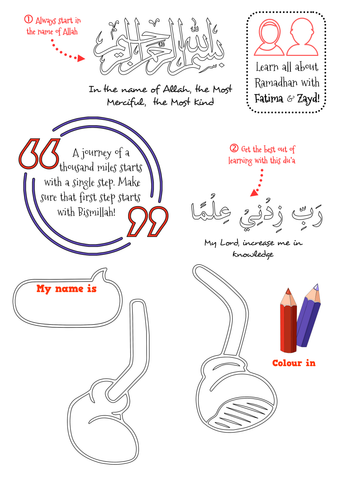 ① Always start in
the name of Allah
بسم الله الرحمن الرحيم
In the name of Allah, the Most
Merciful, the Most Kind
Learn all about
Ramadhan with
Fatima & Zayd!
“
A journey of a
thousand miles starts
with a single step. Make
sure that first step starts
with Bismillah!
”
② Get the best out of
learning with this du'a
رَبِّ زِدْنِيْ عِلْمًا
My Lord, increase me in
knowledge
My name is
Colour in